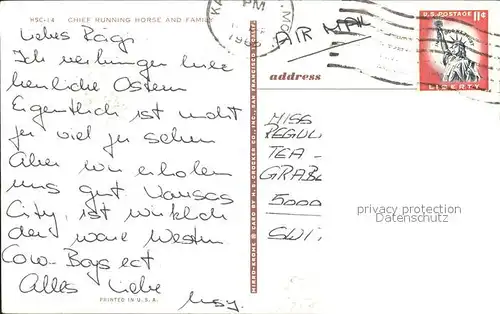 HSC-14 CHIEF RUNNING HORSE AND FAMILY
Liebes
Ich verbringe hier
herrliche Ostern
Eigentlich ist nicht
viel zu sehen
Aber wir erholen
uns gut. Kansas
City, ist wirklich
der ware Westen
Cow-Boys ect
Alles Liebe
PRINTED IN U.S.A.
MIRRO-KROME ® CARD BY H. S. CROCKER CO., INC., SAN FRANCISCO
KA MO.
PM
AIR MAIL
U.S. POSTAGE 11¢
LIBERTY
address
MISS
REGUL
TEA-
GRABE
5000
SWI
privacy protection
Datenschutz